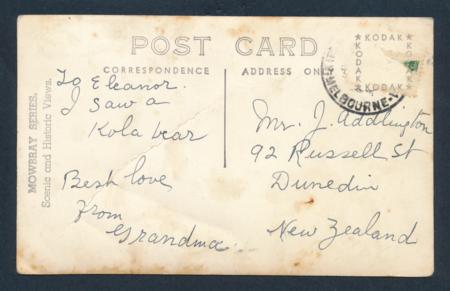 POST CARD
CORRESPONDENCE
ADDRESS ONLY
★ KODAK ★
KODAK
KODAK
★ KODAK ★
MELBOURNE
MOWBRAY SERIES.
Scenic and Historic Views.
To Eleanor.
I saw a
Kola bear
Best love
From
Grandma
Mr. J. Addlington
92 Russell St
Dunedin
New Zealand